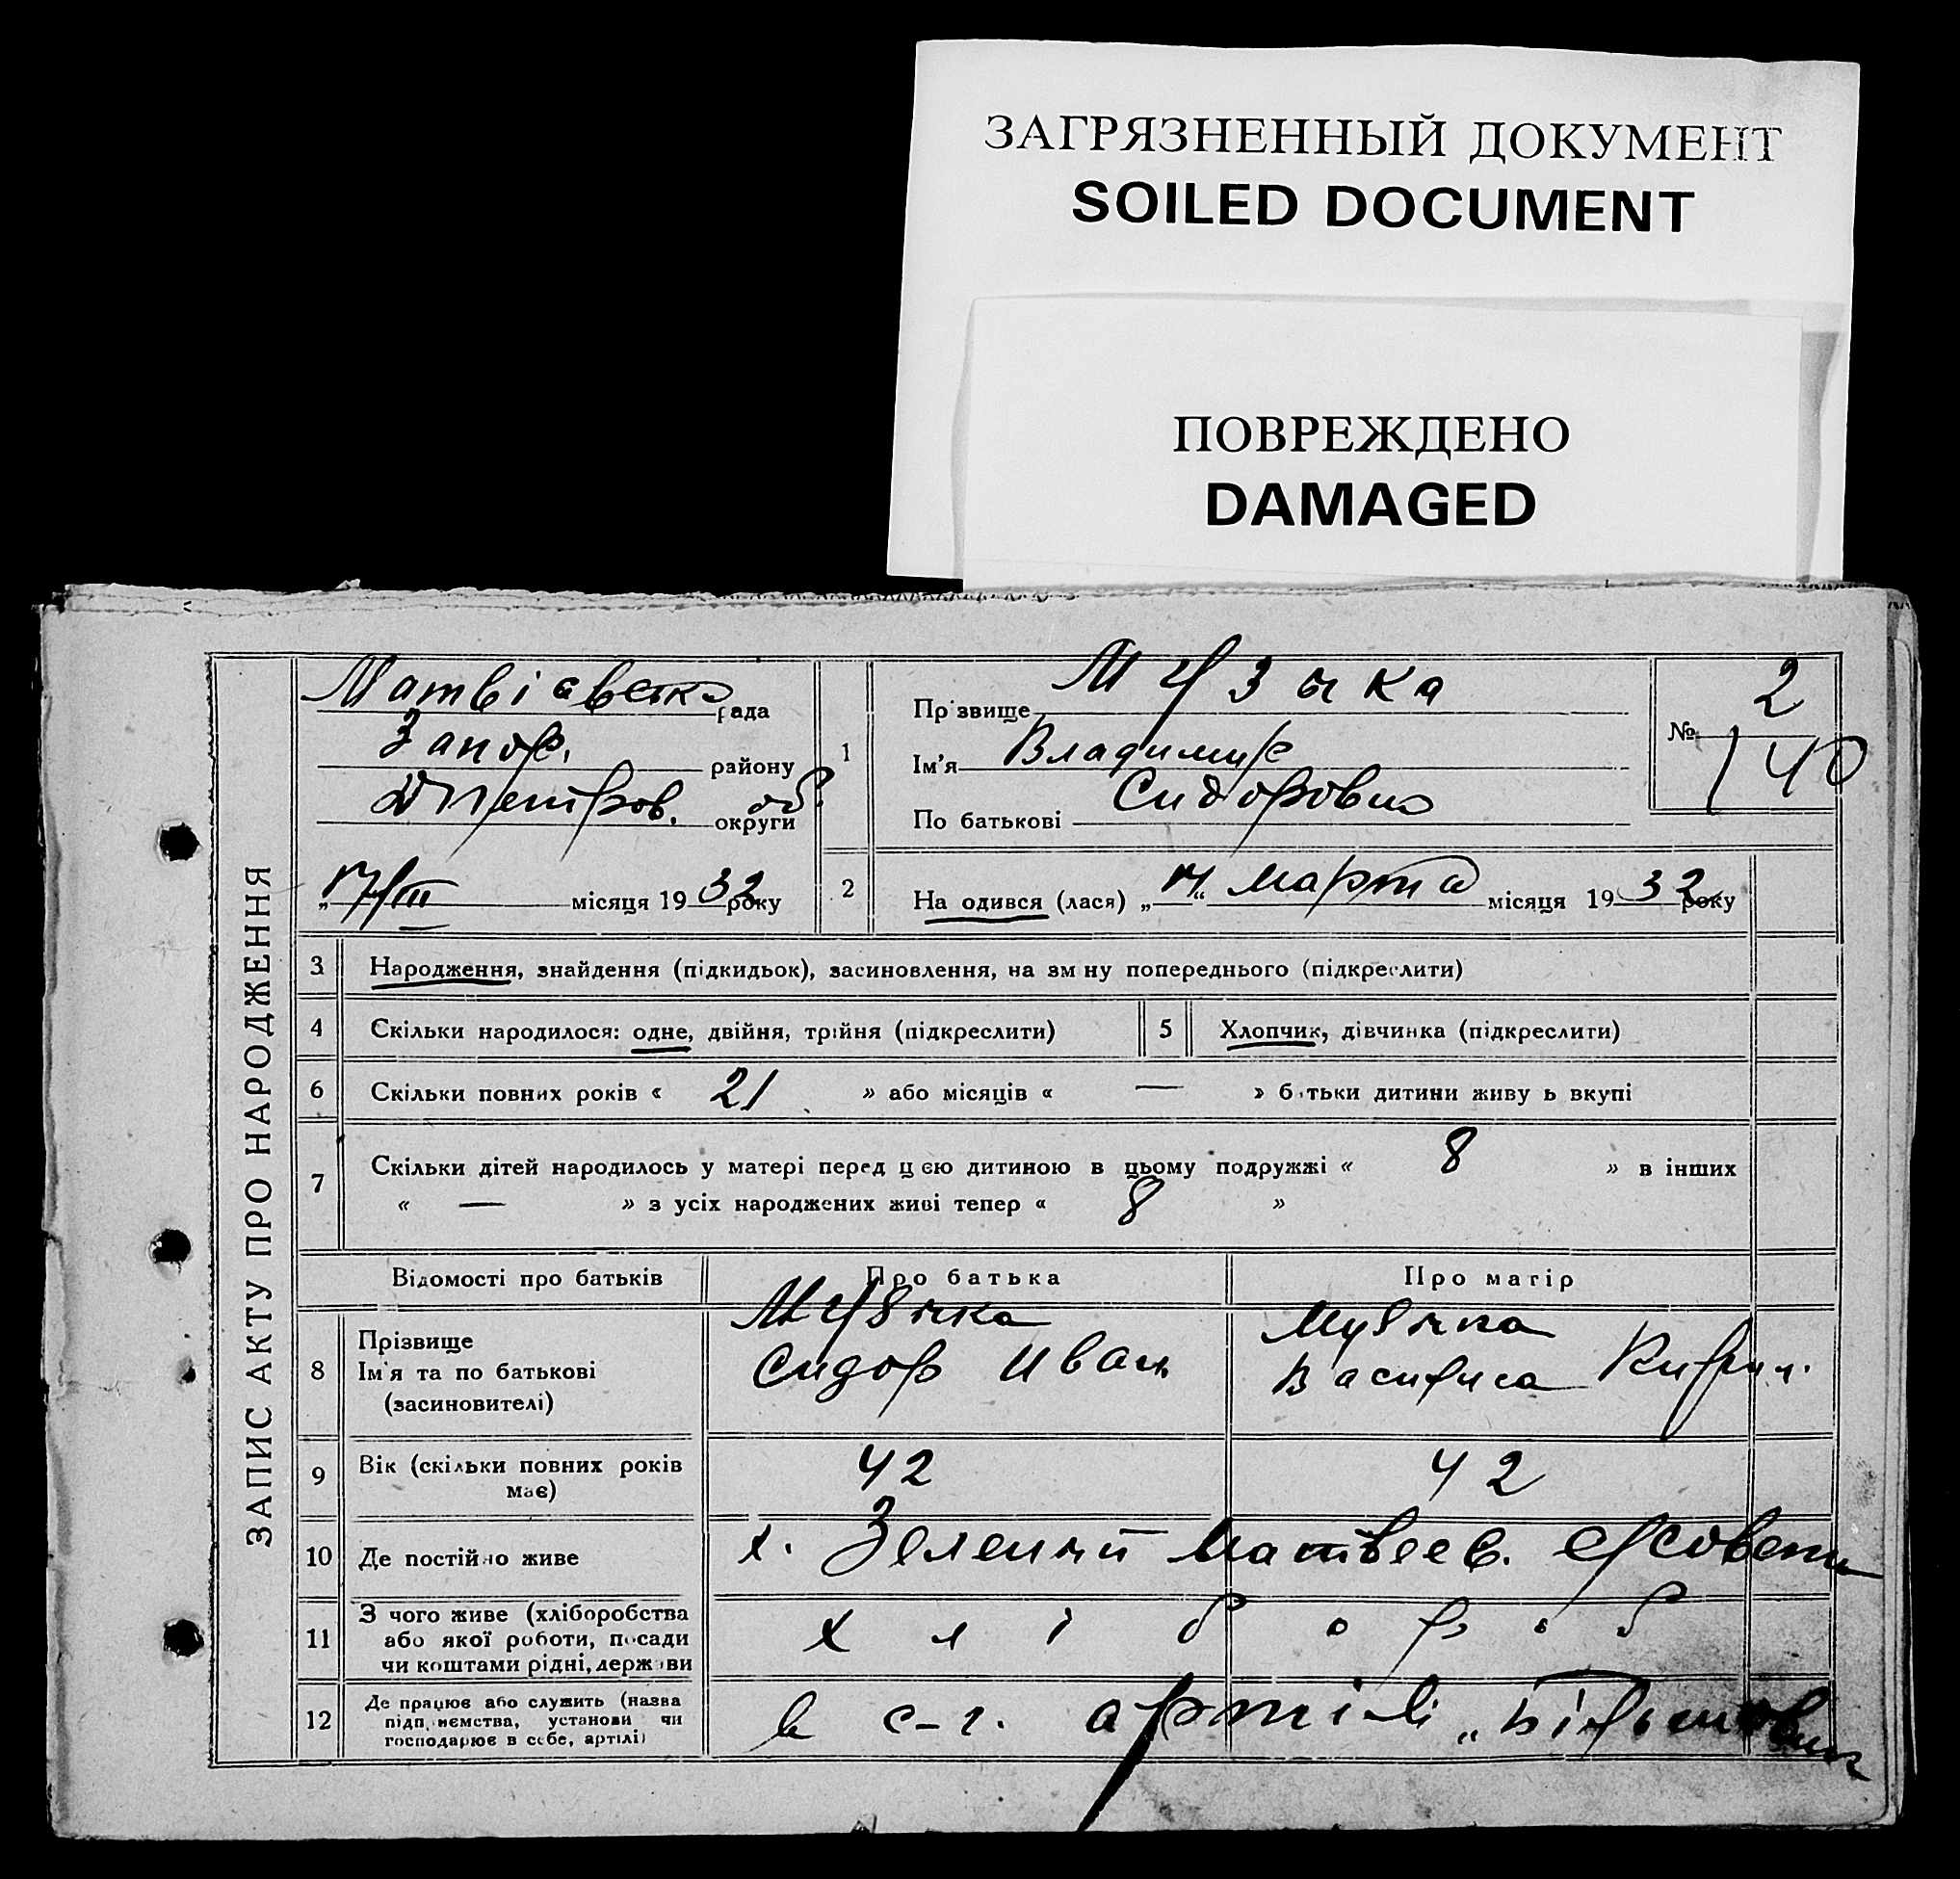 ЗАГРЯЗНЕННЫЙ ДОКУМЕНТ
SOILED DOCUMENT
ПОВРЕЖДЕНО
DAMAGED
ЗАПИС АКТУ ПРО НАРОДЖЕННЯ
Матвієвська рада
Запор. району
Дпетров. об. округи
17/III місяця 1932 року
1
Прізвище Музыка
Ім'я Владимир
По батькові Сидорович
№ 2
140
2 Народився (лася) „17“ марта місяця 1932 року
3 Народження, знайдення (підкидьок), засиновлення, на зміну попереднього (підкреслити)
4 Скільки народилося: одне, двійня, трійня (підкреслити) 5 Хлопчик, дівчинка (підкреслити)
6 Скільки повних років « 21 » або місяців « — » батьки дитини живуть вкупі
7 Скільки дітей народилось у матері перед цією дитиною в цьому подружжі « 8 » в інших
« — » з усіх народжених живі тепер « 8 »
Відомості про батьків Про батька Про матір
8 Прізвище
Ім'я та по батькові
(засиновителі)
Музичка
Сидор Иван
Музичка
Василиса Кирил.
9 Вік (скільки повних років
має)
42 42
10 Де постійно живе х. Зеленый Матвеев. с/совета
11 З чого живе (хліборобства
або якої роботи, посади
чи коштами рідні, держави
хлібороб
12 Де працює або служить (назва
підприємства, установи чи
господарює в себе, артілі)
в с-г. артілі „Більшовик